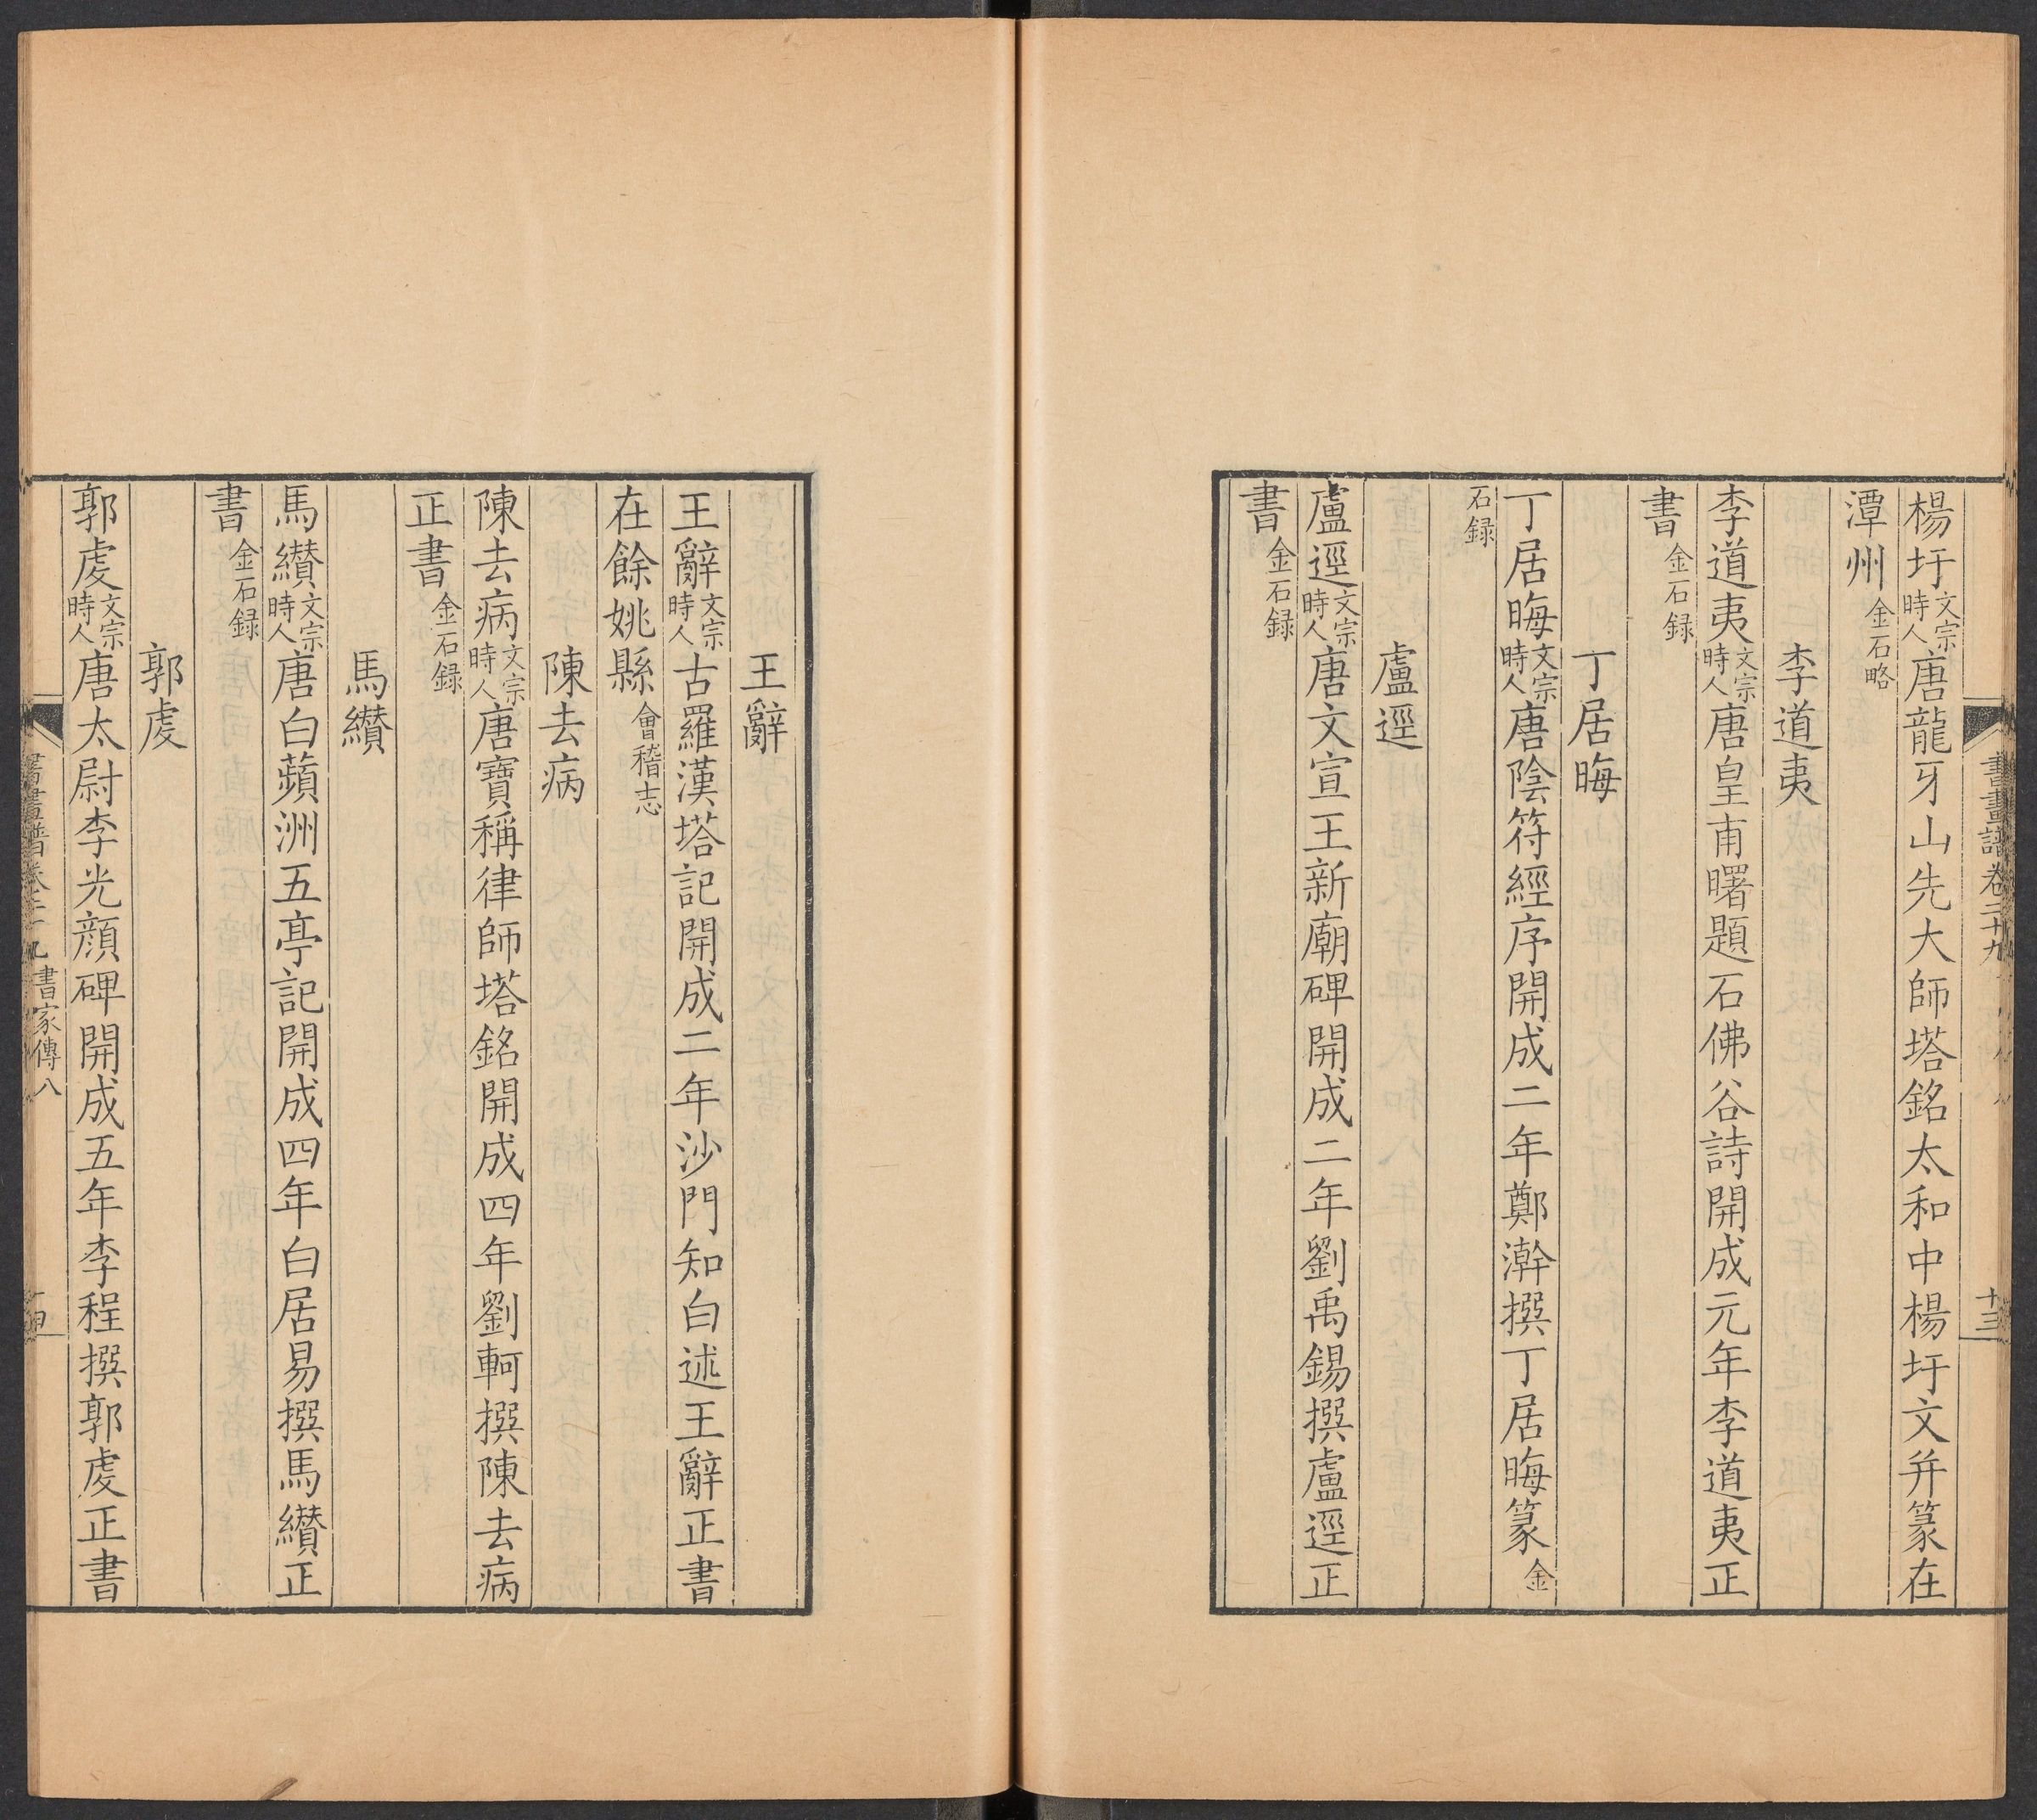 書畫譜卷二十九
十三
楊圩文宗時人唐龍牙山先大師塔銘太和中楊圩文并篆在
潭州金石略
李道夷
李道夷文宗時人唐皇甫曙題石佛谷詩開成元年李道夷正
書金石録
丁居晦
丁居晦文宗時人唐陰符經序開成二年鄭澣撰丁居晦篆金
石録
盧逕
盧逕文宗時人唐文宣王新廟碑開成二年劉禹錫撰盧逕正
書金石録
王辭
王辭文宗時人古羅漢塔記開成二年沙門知白述王辭正書
在餘姚縣會稽志
陳去病
陳去病文宗時人唐寶稱律師塔銘開成四年劉軻撰陳去病
正書金石録
馬纘
馬纘文宗時人唐白蘋洲五亭記開成四年白居易撰馬纘正
書金石録
郭虔
郭虔文宗時人唐太尉李光顔碑開成五年李程撰郭虔正書
書畫譜卷二十九 書家傳八